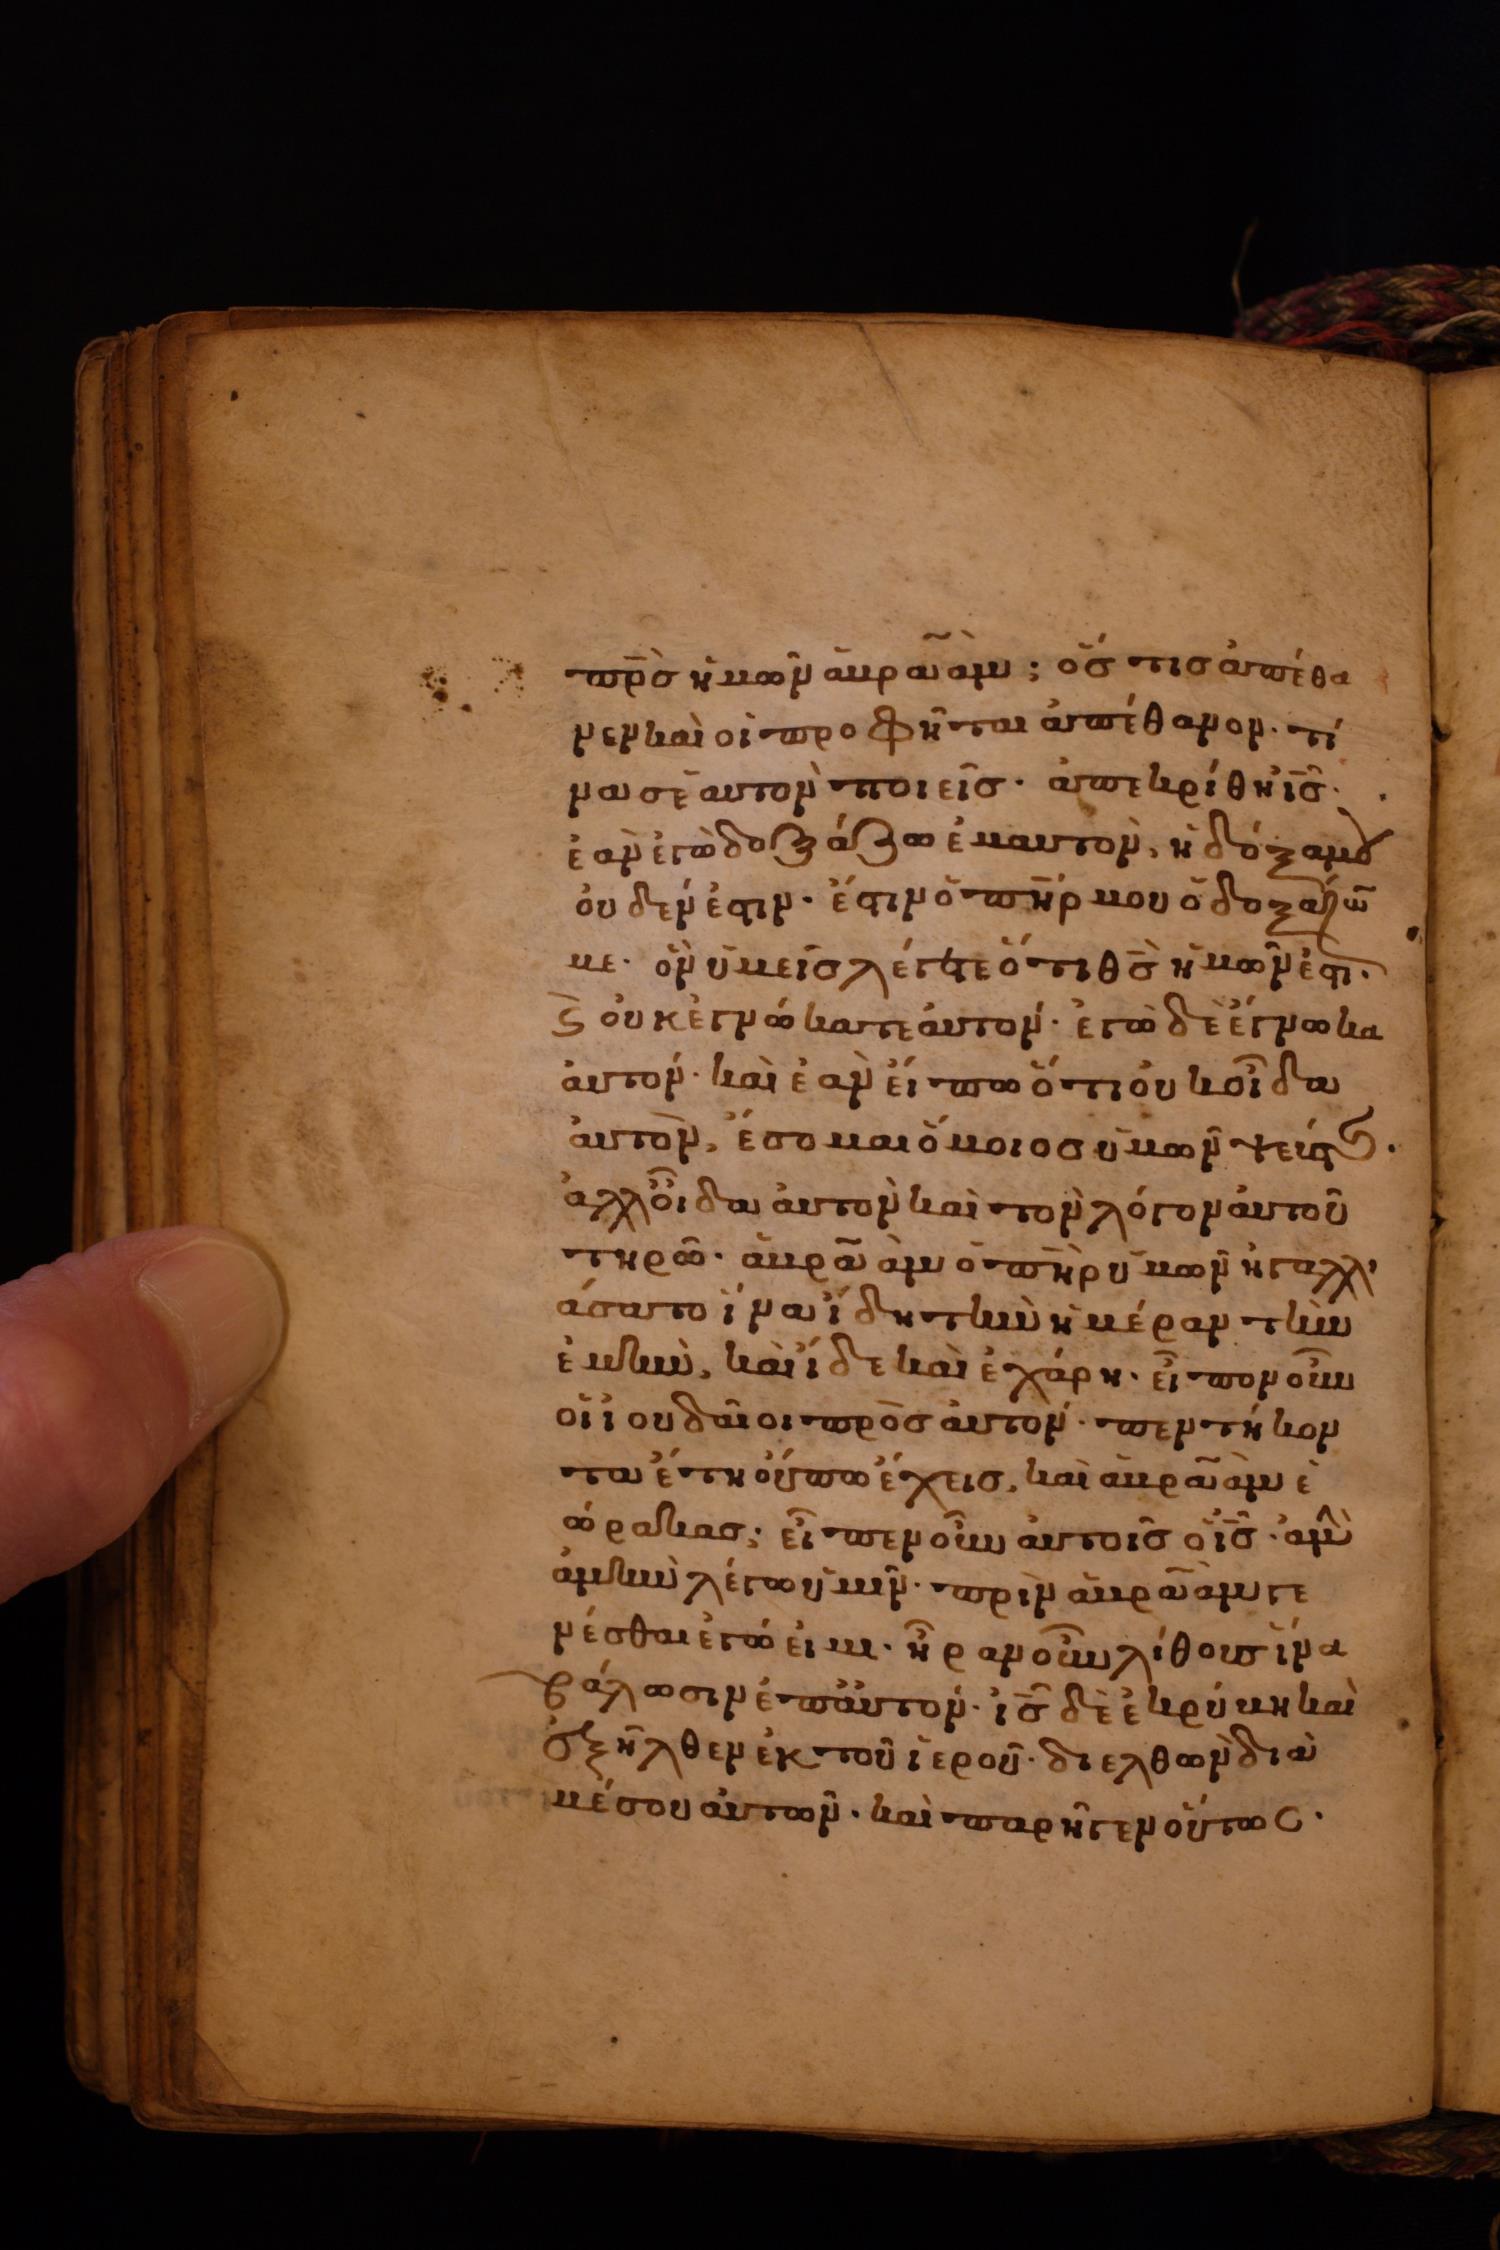 πρ̅ὸσ ἡμῶν ἀβραὰμ; ὅστισ ἀπέθα
νεν καὶ οἱ προφῆται ἀπέθανον· τί
να σεαυτὸν ποιεῖσ· ἀπεκρίθη ἰ̅σ̅·
ἐὰν ἐγὼ δοξάζω ἐμαυτὸν, ἡ δόξα μου
οὐδέν ἐστιν· ἔστιν ὁ π̅η̅ρ μου ὁ δοξάζων
με· ὃν ὑμεῖσ λέγετε ὅτι θ̅σ̅ ἡμῶν ἐστι·
ϛ οὐκ ἐγνώκατε αὐτόν· ἐγὼ δὲ ἔγνωκα
αὐτόν· καὶ ἐὰν εἴπω ὅτι οὐκ οἶδα
αὐτὸν, ἔσομαι ὅμοιοσ ὑμῶν ψεύστησ·
ἀλλ οἶδα αὐτὸν καὶ τὸν λόγον αὐτοῦ
τηρῶ· ἀβραὰμ ὁ π̅η̅ρ ὑμῶν ἠγαλλι
άσατο ἵνα ἴδη τὴν ἡμέραν τὴν
ἐμὴν, καὶ ἴδε καὶ ἐχάρη· εἶπον οὖν
οἱ ἰουδαῖοι πρὸσ αὐτόν· πεντήκον
τα ἔτη οὔπω ἔχεισ, καὶ ἀβραὰμ ἑ
ώρακασ; εἶπεν οὖν αὐτοῖσ ὁ ἰ̅σ̅· ἀμὴν
ἀμὴν λέγω ὑμῖν· πρὶν ἀβραὰμ γε
νέσθαι ἐγώ εἰμι· ἦραν οὖν λίθουσ ἵνα
βάλωσιν ἐπ αὐτόν· ἰ̅σ̅ δὲ ἐκρύβη καὶ
ἐξῆλθεν ἐκ τοῦ ἱεροῦ· διελθὼν διὰ
μέσου αὐτῶν· καὶ παρῆγεν οὕτωσ·